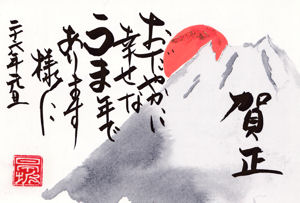 賀正
おだやかに
幸せな
うま年で
あります
様に
二十六年元旦